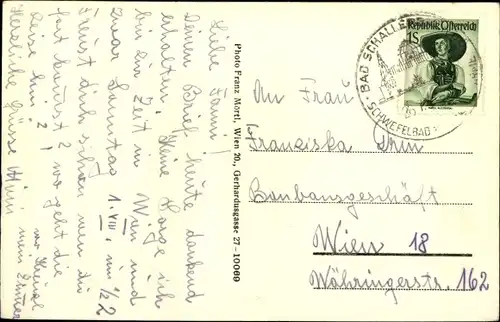 Liebe Fanni!
Deinen Brief heute dankend
erhalten. Keine Sorge ich
bin zur Zeit in Wien und
zwar Samstag 1. VIII, um 1/2 2
Freust dich schon wenn du
fort kannst? wo geht die
Reise hin?!
Herzliche Grüsse Mimi
Photo Franz Mörtl, Wien 20., Gerhardusgasse 27 - 10069
Republik Österreich
1 S
BAD SCHALLER
SCHWEFELBAD
An Frau
Franziska
Baubansgeschäft
Wien 18
Währingerstr. 162